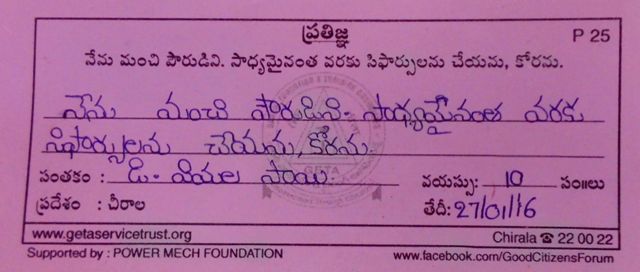 ప్రతిజ్ఞ
P 25
నేను మంచి పౌరుడిని. సాధ్యమైనంత వరకు సిఫార్సులను చేయను, కోరను.
నేను మంచి పౌరుడిని. సాధ్యమైనంత వరకు
సిఫార్సులను చేయను, కోరను.
సంతకం : డి. విమల సాయి వయస్సు: 10 సం॥లు
ప్రదేశం : చీరాల తేదీ: 27/01/16
www.getaservicetrust.org Chirala ☎ 22 00 22
Supported by : POWER MECH FOUNDATION www.facebook.com/GoodCitizensForum